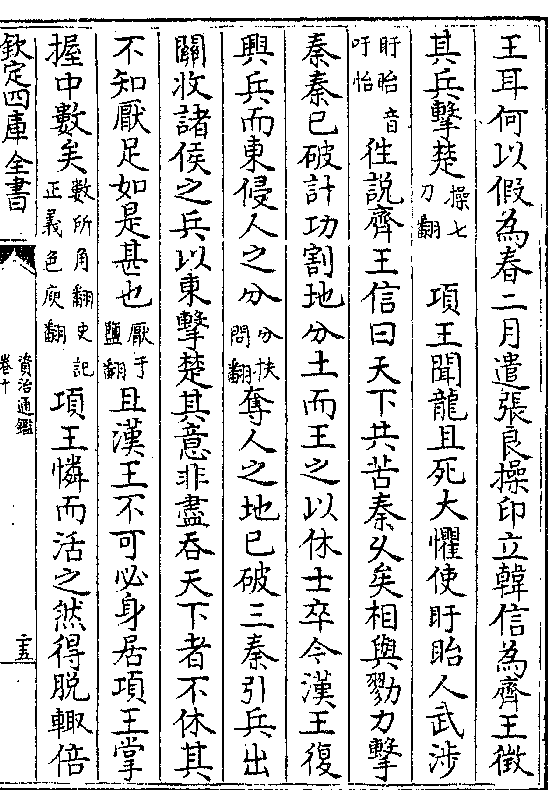 王耳何以假為春二月遣張良操印立韓信為齊王徵
其兵擊楚操七刀翻 項王聞龍且死大懼使盱眙人武涉
盱眙音吁怡徃說齊王信曰天下共苦秦乆矣相與勠力擊
秦秦已破計功割地分土而王之以休士卒今漢王復
興兵而東侵人之分分扶問翻奪人之地已破三秦引兵出
關收諸侯之兵以東擊楚其意非盡吞天下者不休其
不知厭足如是甚也厭于鹽翻且漢王不可必身居項王掌
握中數矣數所角翻史記正義色庾翻項王憐而活之然得脱輙倍
欽定四庫全書
資治通鑑
卷十
十五